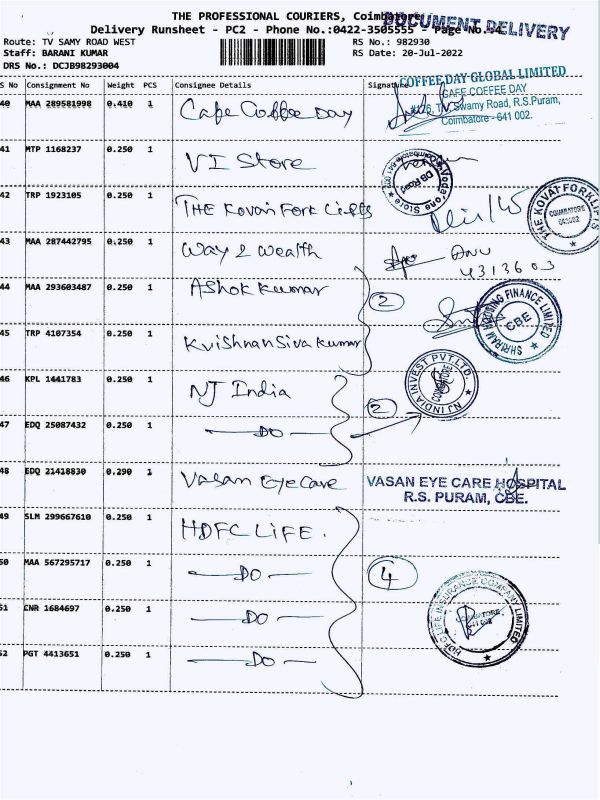 THE PROFESSIONAL COURIERS, Coimbatore
DOCUMENT DELIVERY
Delivery Runsheet - PC2 - Phone No.:0422-3505555 - Page No.:4
Route: TV SAMY ROAD WEST
RS No.: 982930
Staff: BARANI KUMAR
RS Date: 20-Jul-2022
DRS No.: DCJB98293004
S No Consignment No Weight PCS Consignee Details Signature
COFFEE DAY GLOBAL LIMITED
CAFE COFFEE DAY
Swamy Road, R.S.Puram,
Coimbatore - 641 002.
40 MAA 289581998 0.410 1 Cafe Coffee Day
41 MTP 1168237 0.250 1 VI Store
Vodafone Store
DB Road
42 TRP 1923105 0.250 1 THE Kovai Fork Lifts
THE KOVAI FORK LIFTS
COIMBATORE
641002
43 MAA 287442795 0.250 1 Way 2 Wealth
4313603
44 MAA 293603487 0.250 1 Ashok Kumar
2
SHRIRAM HOUSING FINANCE LIMITED
CBE
45 TRP 4107354 0.250 1 Krishnan Siva Kumar
46 KPL 1441783 0.250 1 NJ India
2
NJ INDIA INVEST PVT.LTD.
COIMBATORE
47 EDQ 25087432 0.250 1 — DO —
48 EDQ 21418830 0.290 1 Vasan Eye Care
VASAN EYE CARE HOSPITAL
R.S. PURAM, CBE.
49 SLM 299667610 0.250 1 HDFC LIFE.
50 MAA 567295717 0.250 1 — DO —
4
51 CNR 1684697 0.250 1 — DO —
HDFC LIFE INSURANCE COMPANY LIMITED
52 PGT 4413651 0.250 1 — DO —